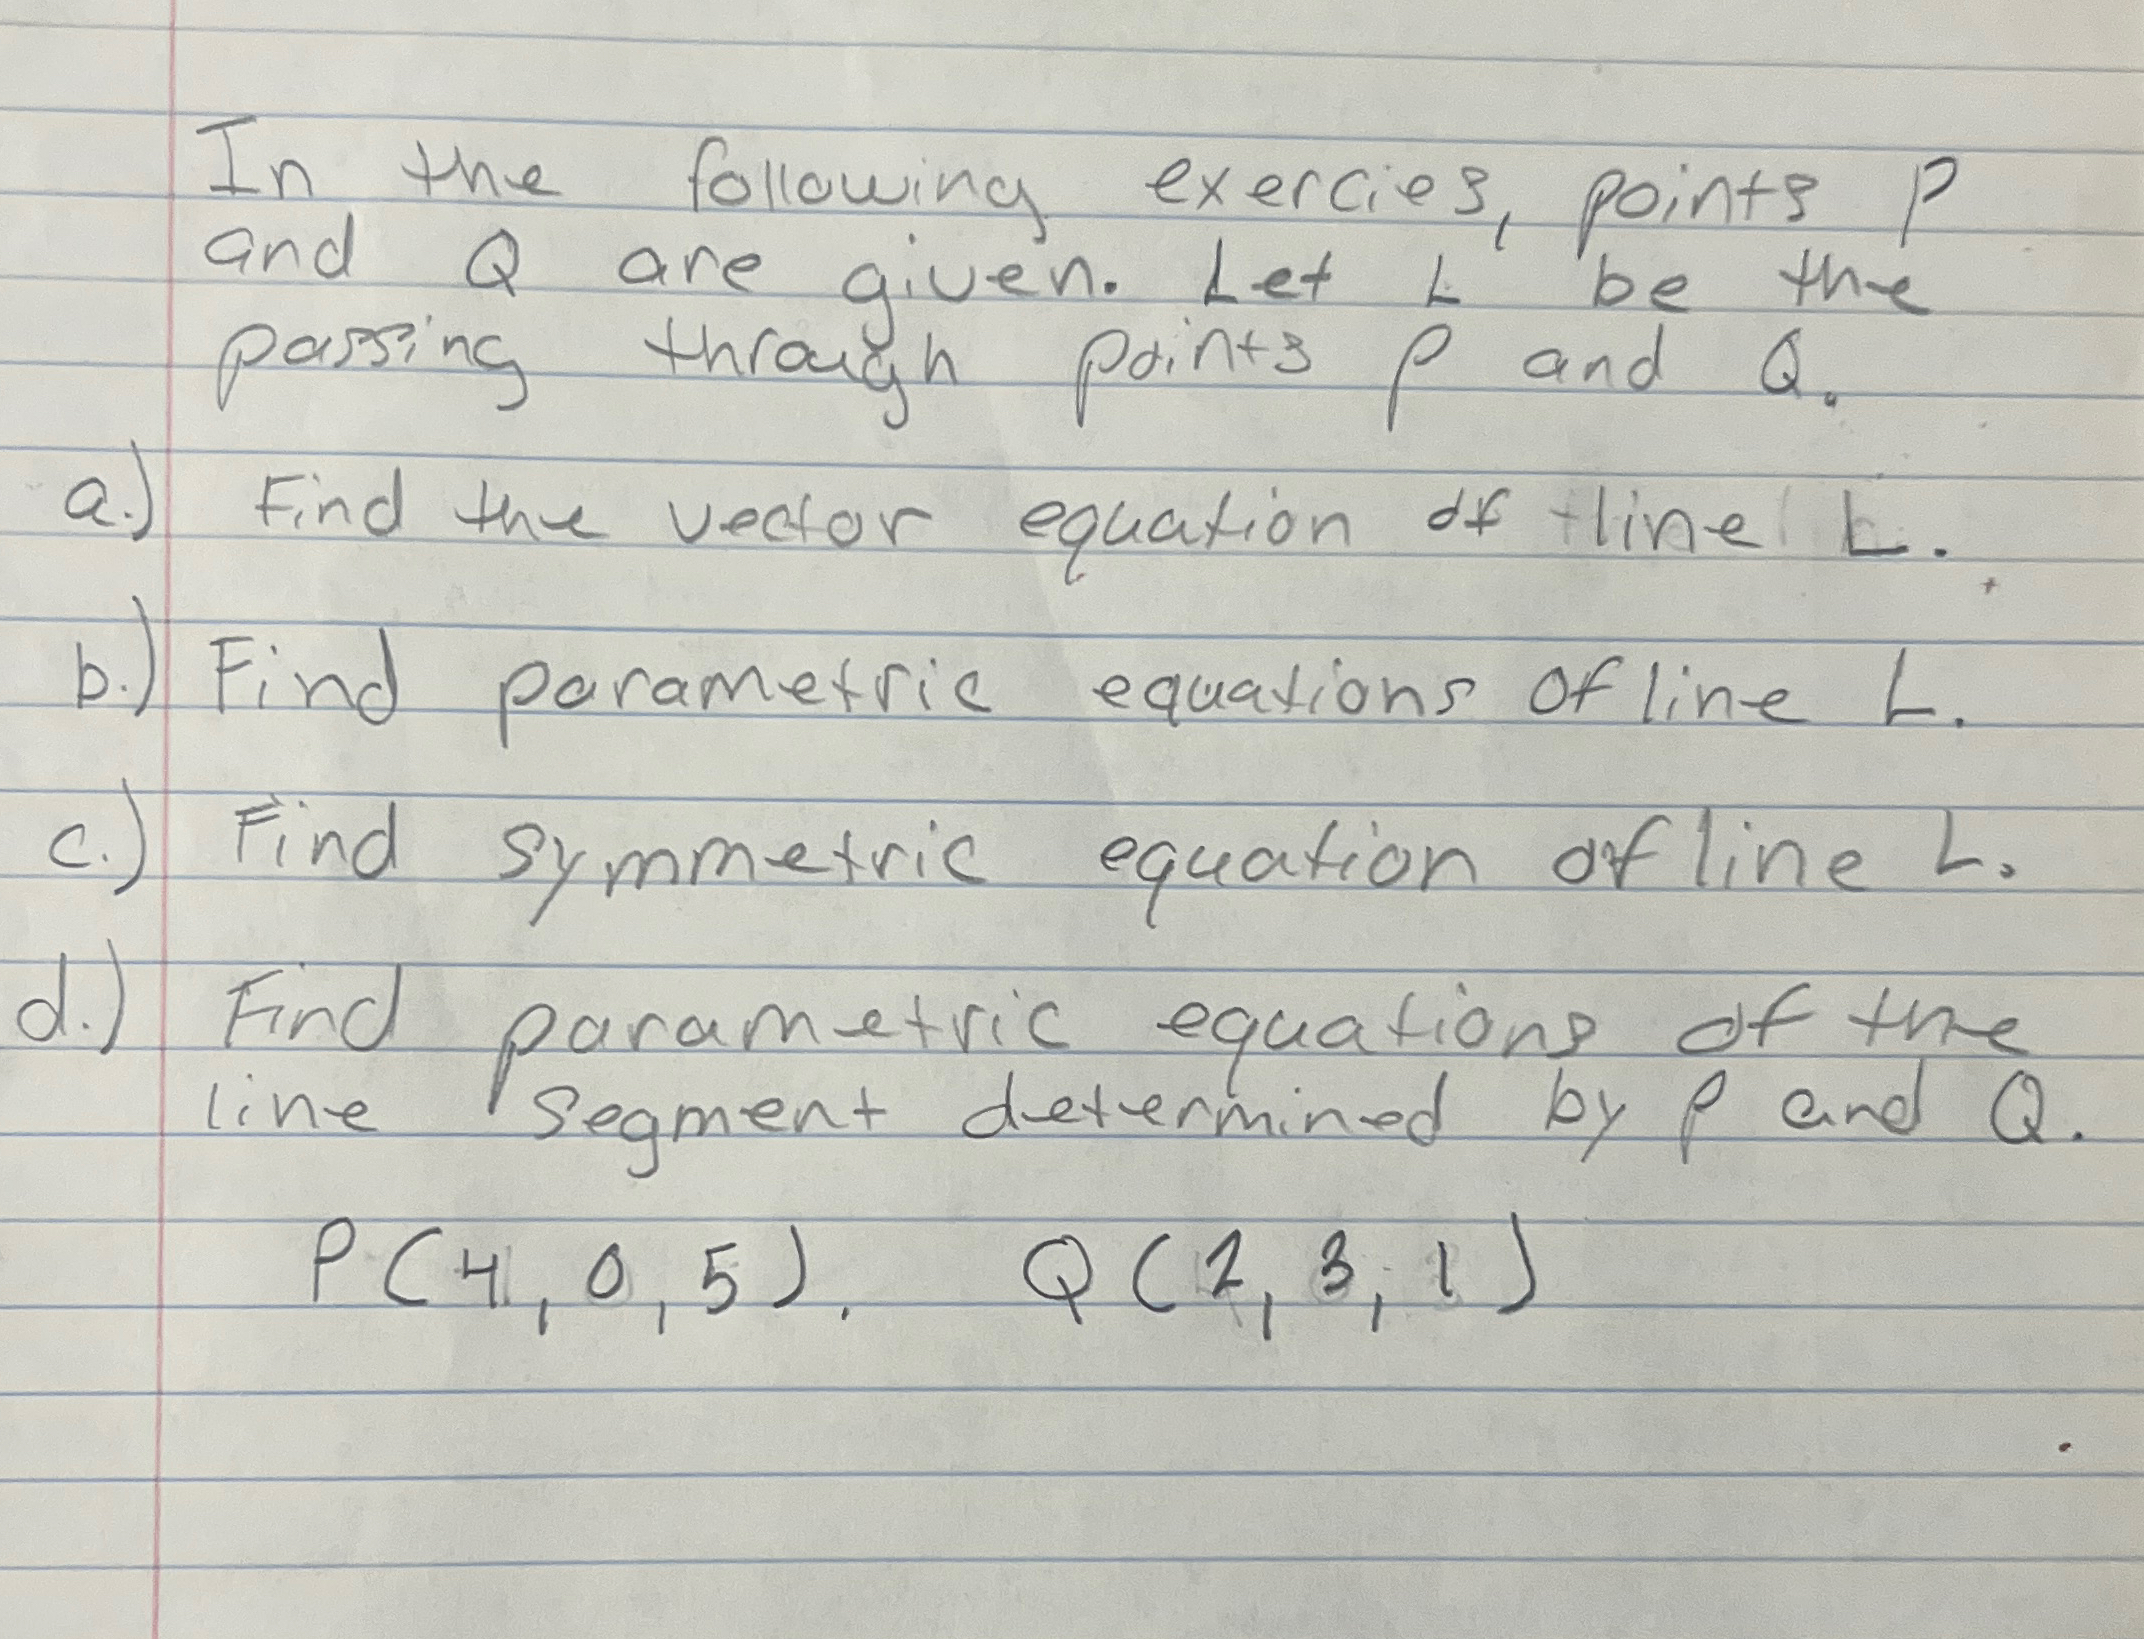 In the following exercies, points P
and Q are given. Let L be the
passing through points P and Q.
a.) Find the vector equation of line L.
b.) Find parametric equations of line L.
c.) Find symmetric equation of line L.
d.) Find parametric equations of the
line segment determined by P and Q.
P(4, 0, 5). Q(2, 3, 1)